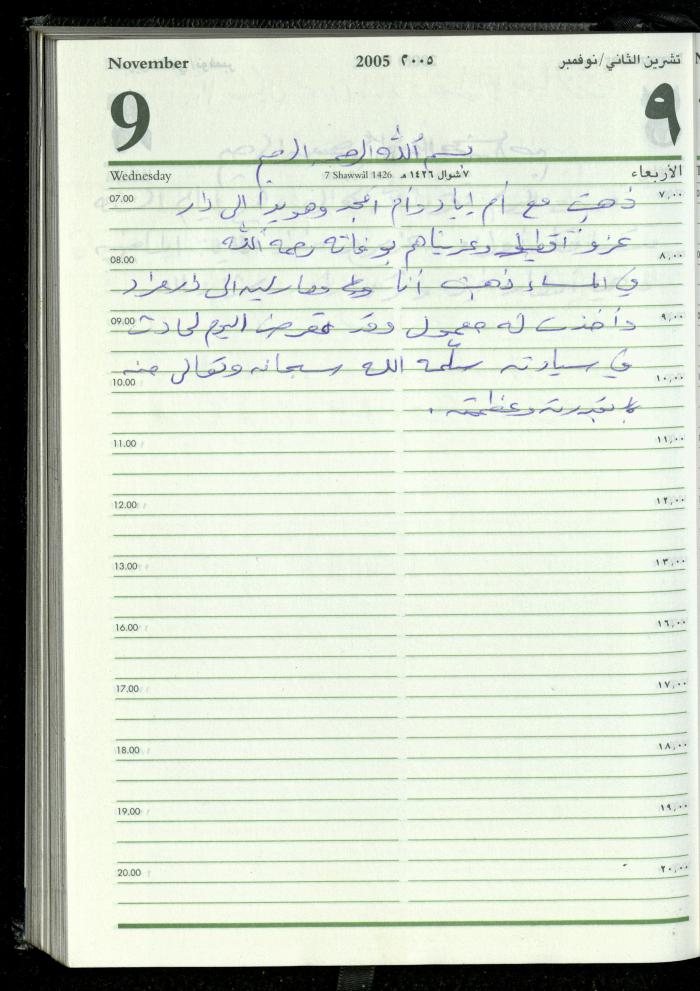 November 2005 ٢٠٠٥ تشرين الثاني/نوفمبر
9 ٩
بسم الله الرحمن الرحيم
Wednesday 7 Shawwâl 1426 ٧ شوال ١٤٢٦ هـ الأربعاء
07.00 ذهبت مع أم إياد وأم امجد وهويدا الى دار ٧,٠٠
عزو وعزيناهم بوفاته رحمه الله
08.00 ٨,٠٠
في المساء ذهبت أنا الى دار مراد
09.00 وأخذت له معمول وقد تعرض اليوم لحادث ٩,٠٠
في سيارته سلّمه الله سبحانه وتعالى منه
10.00 ١٠,٠٠
بقدرته وعظمته .
11.00 ١١,٠٠
12.00 ١٢,٠٠
13.00 ١٣,٠٠
16.00 ١٦,٠٠
17.00 ١٧,٠٠
18.00 ١٨,٠٠
19.00 ١٩,٠٠
20.00 ٢٠,٠٠